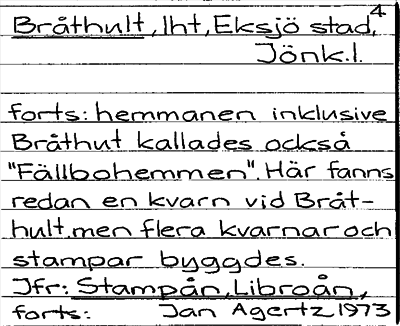 4
Bråthult, lht, Eksjö stad,
Jönk.l.
forts: hemmanen inklusive
Bråthut kallades också
"Fällbohemmen". Här fanns
redan en kvarn vid Bråt-
hult, men flera kvarnar och
stampar byggdes.
Jfr: Stampån, Libroån,
forts: Jan Agertz 1973